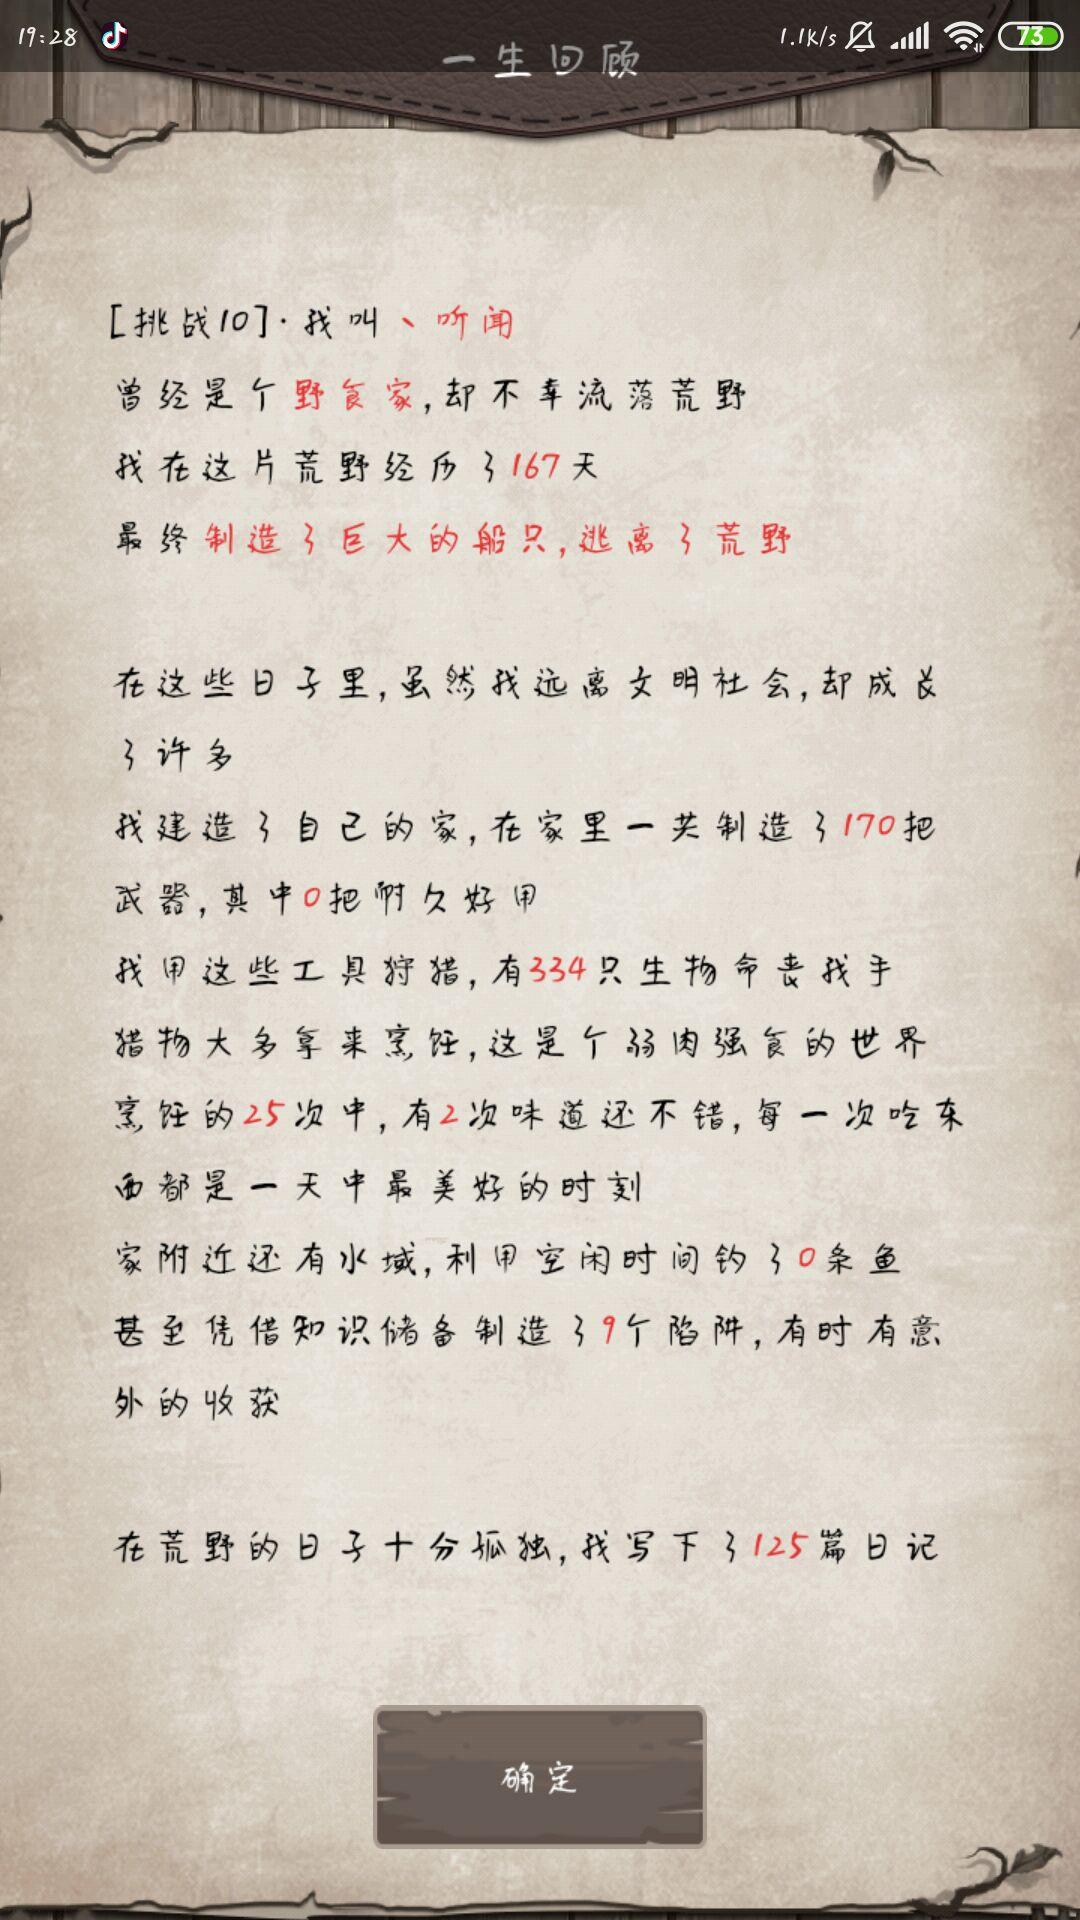 19:28
1.1K/s
73
一生回顾
[挑战10]·我叫丶听闻
曾经是个野食家,却不幸流落荒野
我在这片荒野经历了167天
最终制造了巨大的船只,逃离了荒野
在这些日子里,虽然我远离文明社会,却成长
了许多
我建造了自己的家,在家里一共制造了170把
武器,其中0把耐久好用
我用这些工具狩猎,有334只生物命丧我手
猎物大多拿来烹饪,这是个弱肉强食的世界
烹饪的25次中,有2次味道还不错,每一次吃东
西都是一天中最美好的时刻
家附近还有水域,利用空闲时间钓了0条鱼
甚至凭借知识储备制造了9个陷阱,有时有意
外的收获
在荒野的日子十分孤独,我写下了125篇日记
确定